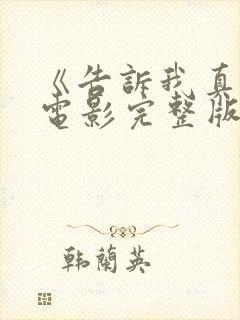 《告訴我真
電影完整版
韓蘭英